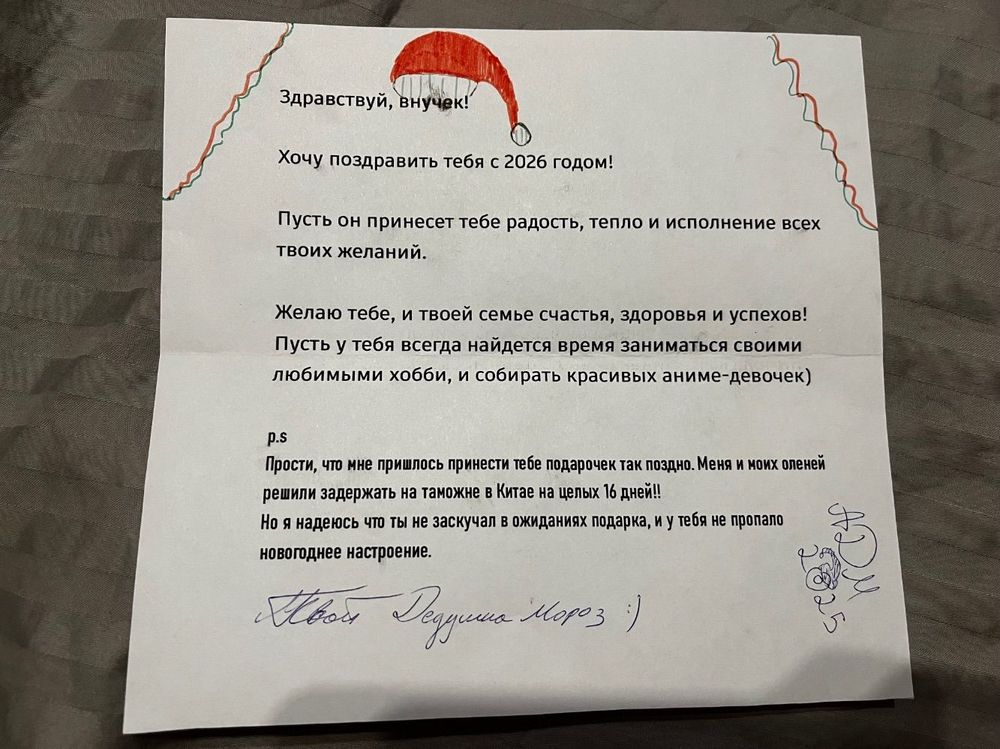 Здравствуй, внучек!
Хочу поздравить тебя с 2026 годом!
Пусть он принесет тебе радость, тепло и исполнение всех
твоих желаний.
Желаю тебе, и твоей семье счастья, здоровья и успехов!
Пусть у тебя всегда найдется время заниматься своими
любимыми хобби, и собирать красивых аниме-девочек)
p.s
Прости, что мне пришлось принести тебе подарочек так поздно. Меня и моих оленей
решили задержать на таможне в Китае на целых 16 дней!!
Но я надеюсь что ты не заскучал в ожиданиях подарка, и у тебя не пропало
новогоднее настроение.
Твой Дедушка Мороз :)
АДМ
2025